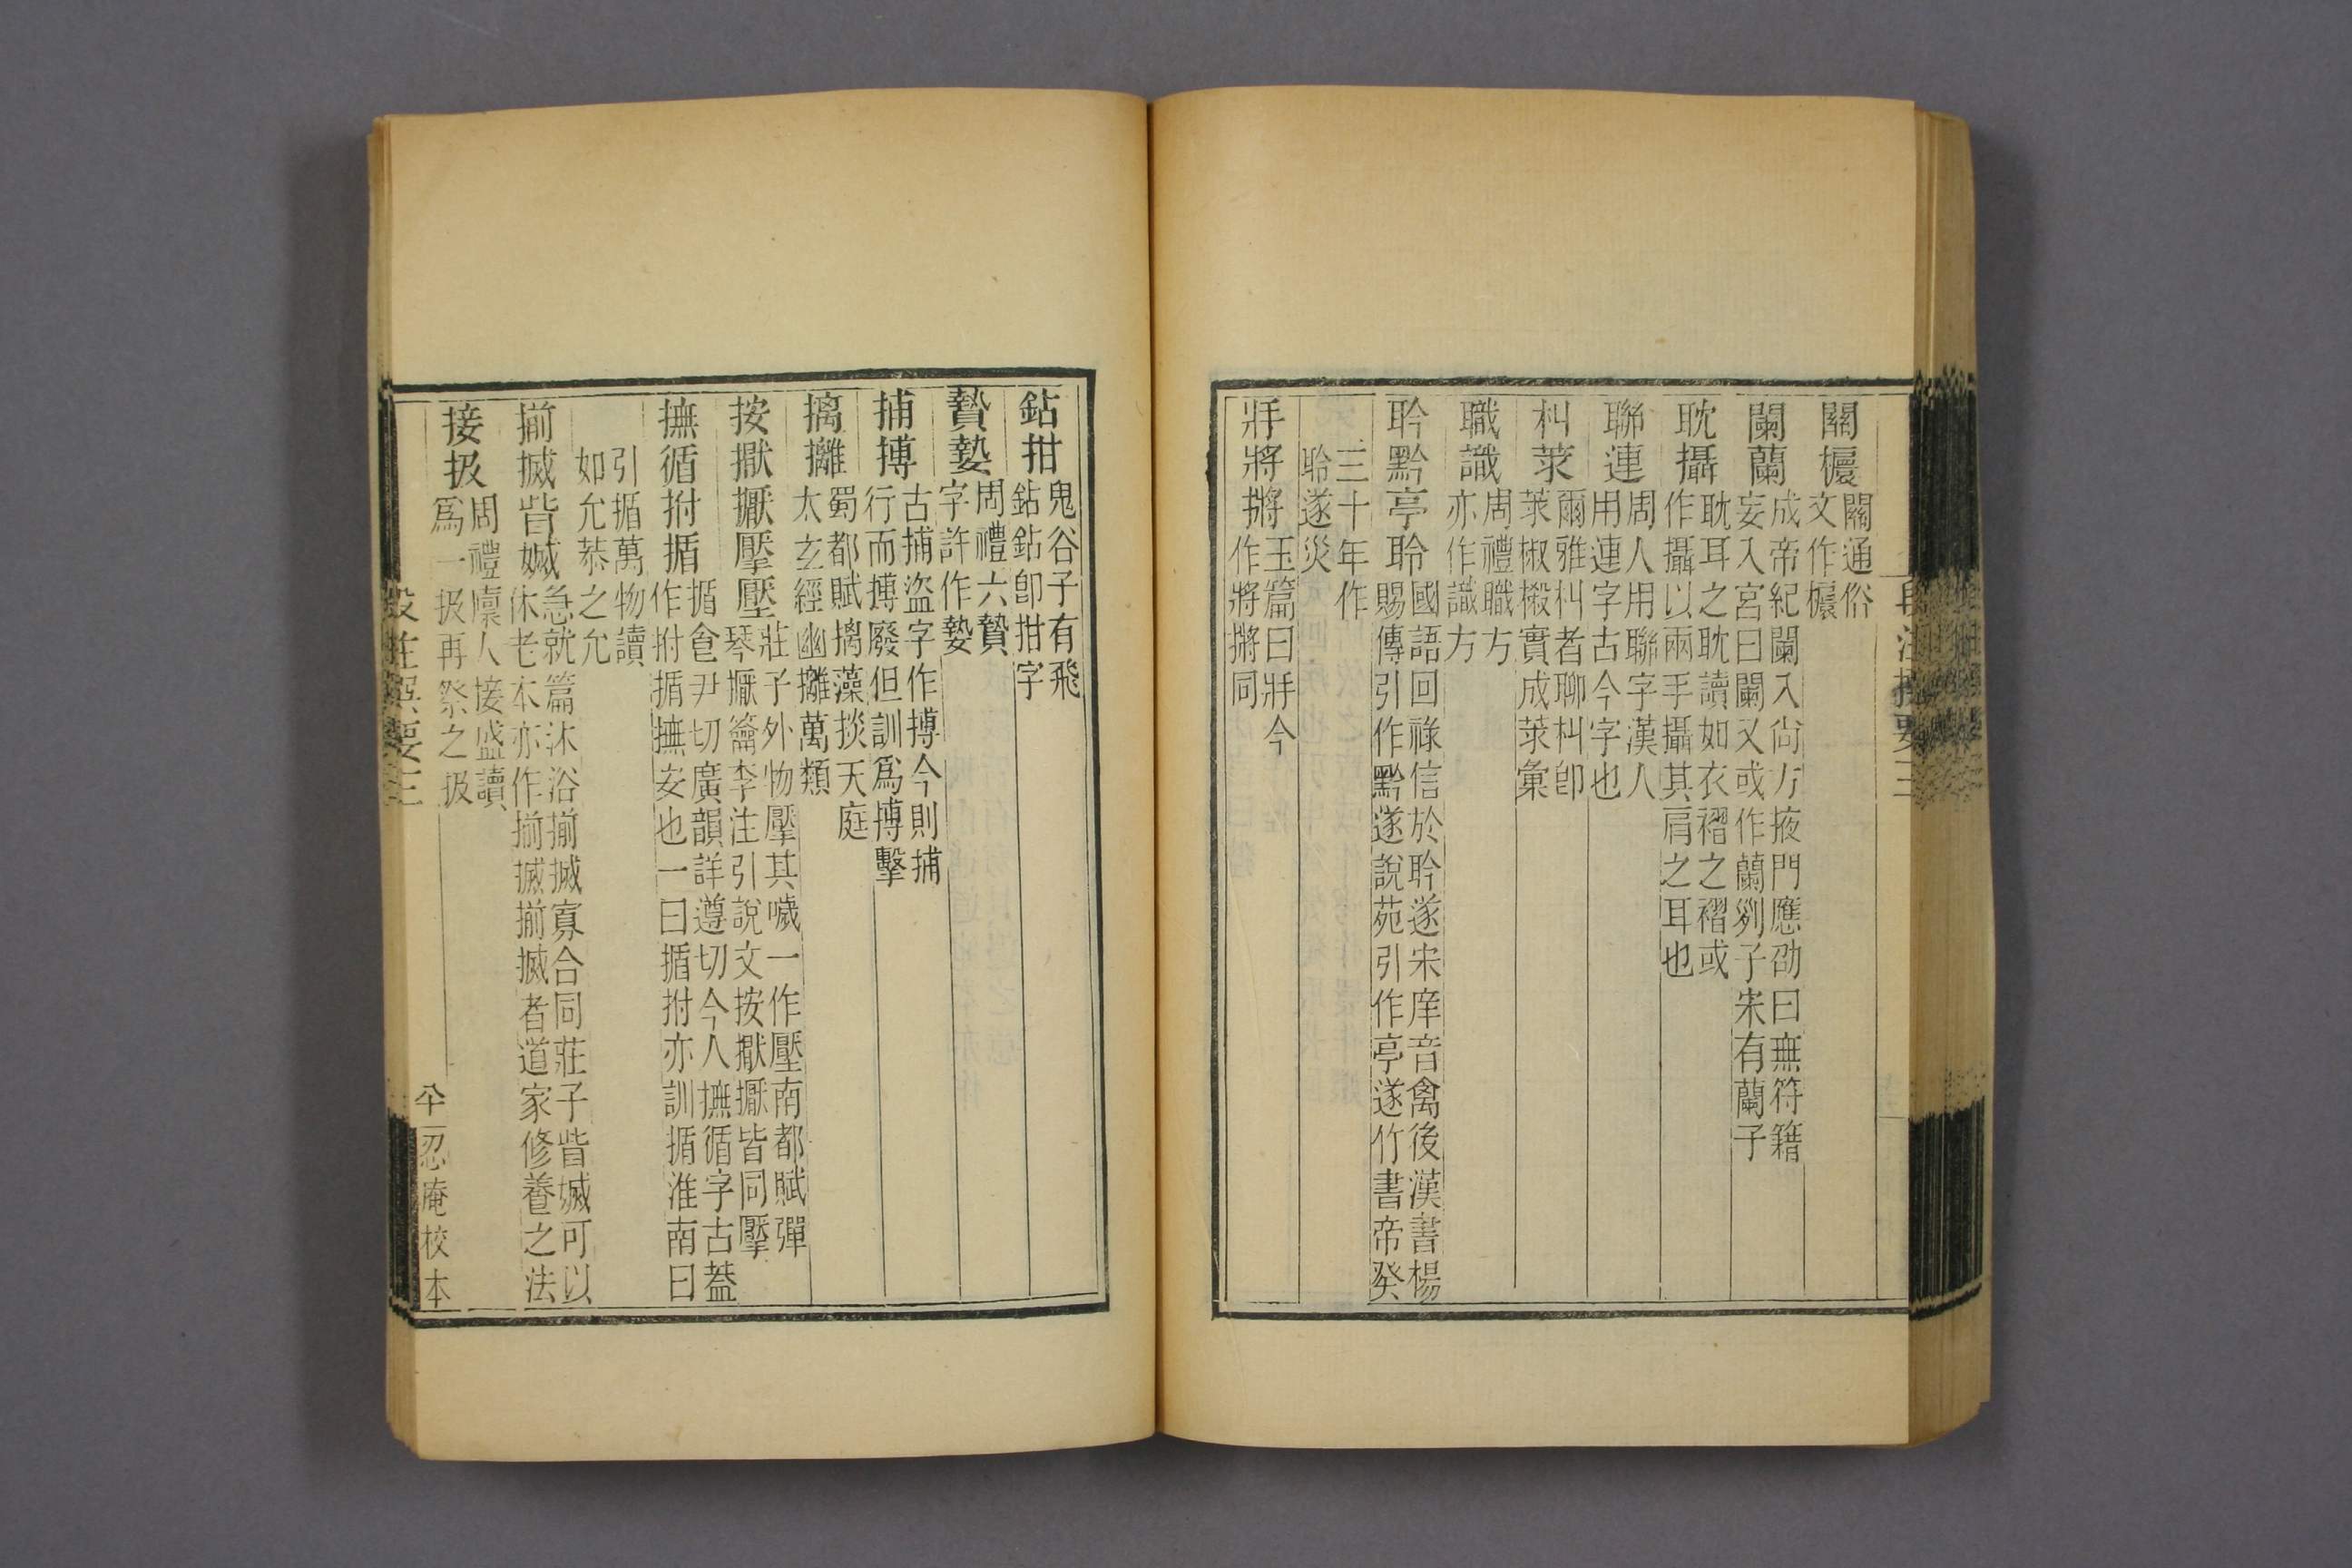 關櫦關通俗
文作櫦
闌蘭成帝紀闌入尙方掖門應劭曰無符籍
妄入宮曰闌又或作蘭列子宋有蘭子
耽攝耽耳之耽讀如衣褶之褶或
作攝以兩手攝其肩之耳也
聯連周人用聯字漢人
用連字古今字也
朻莍爾雅朻者聊朻卽
莍椒樧實成莍彙
職識周禮職方
亦作識方
聆黔亭聆國語回祿信於聆遂宋庠音禽後漢書楊
賜傳引作黔遂說苑引作亭遂竹書帝癸
三十年作
聆遂災
牂將摪玉篇曰牂今
作將摪同
段注撰要三
鉆拑鬼谷子有飛
鉆鉆卽拑字
贄摯周禮六贄
字許作摯
捕搏古捕盜字作搏今則捕
行而搏廢但訓爲搏擊
摛攡蜀都賦摛藻掞天庭
太玄經幽攡萬類
按擪擫壓壓莊子外物壓其噦一作壓南都賦彈
琴擫籥李注引說文按擪擫皆同壓
撫循拊揗揗食尹切廣韻詳遵切今人撫循字古葢
作拊揗撫安也一曰揗拊亦訓揗淮南曰
引揗萬物讀
如允恭之允
揃搣眥㛽急就篇沐浴揃搣寡合同莊子眥㛽可以
休老本亦作揃搣揃搣者道家修養之法
接扱周禮廩人接盛讀
爲一扱再祭之扱
段注撰要三
忍庵校本